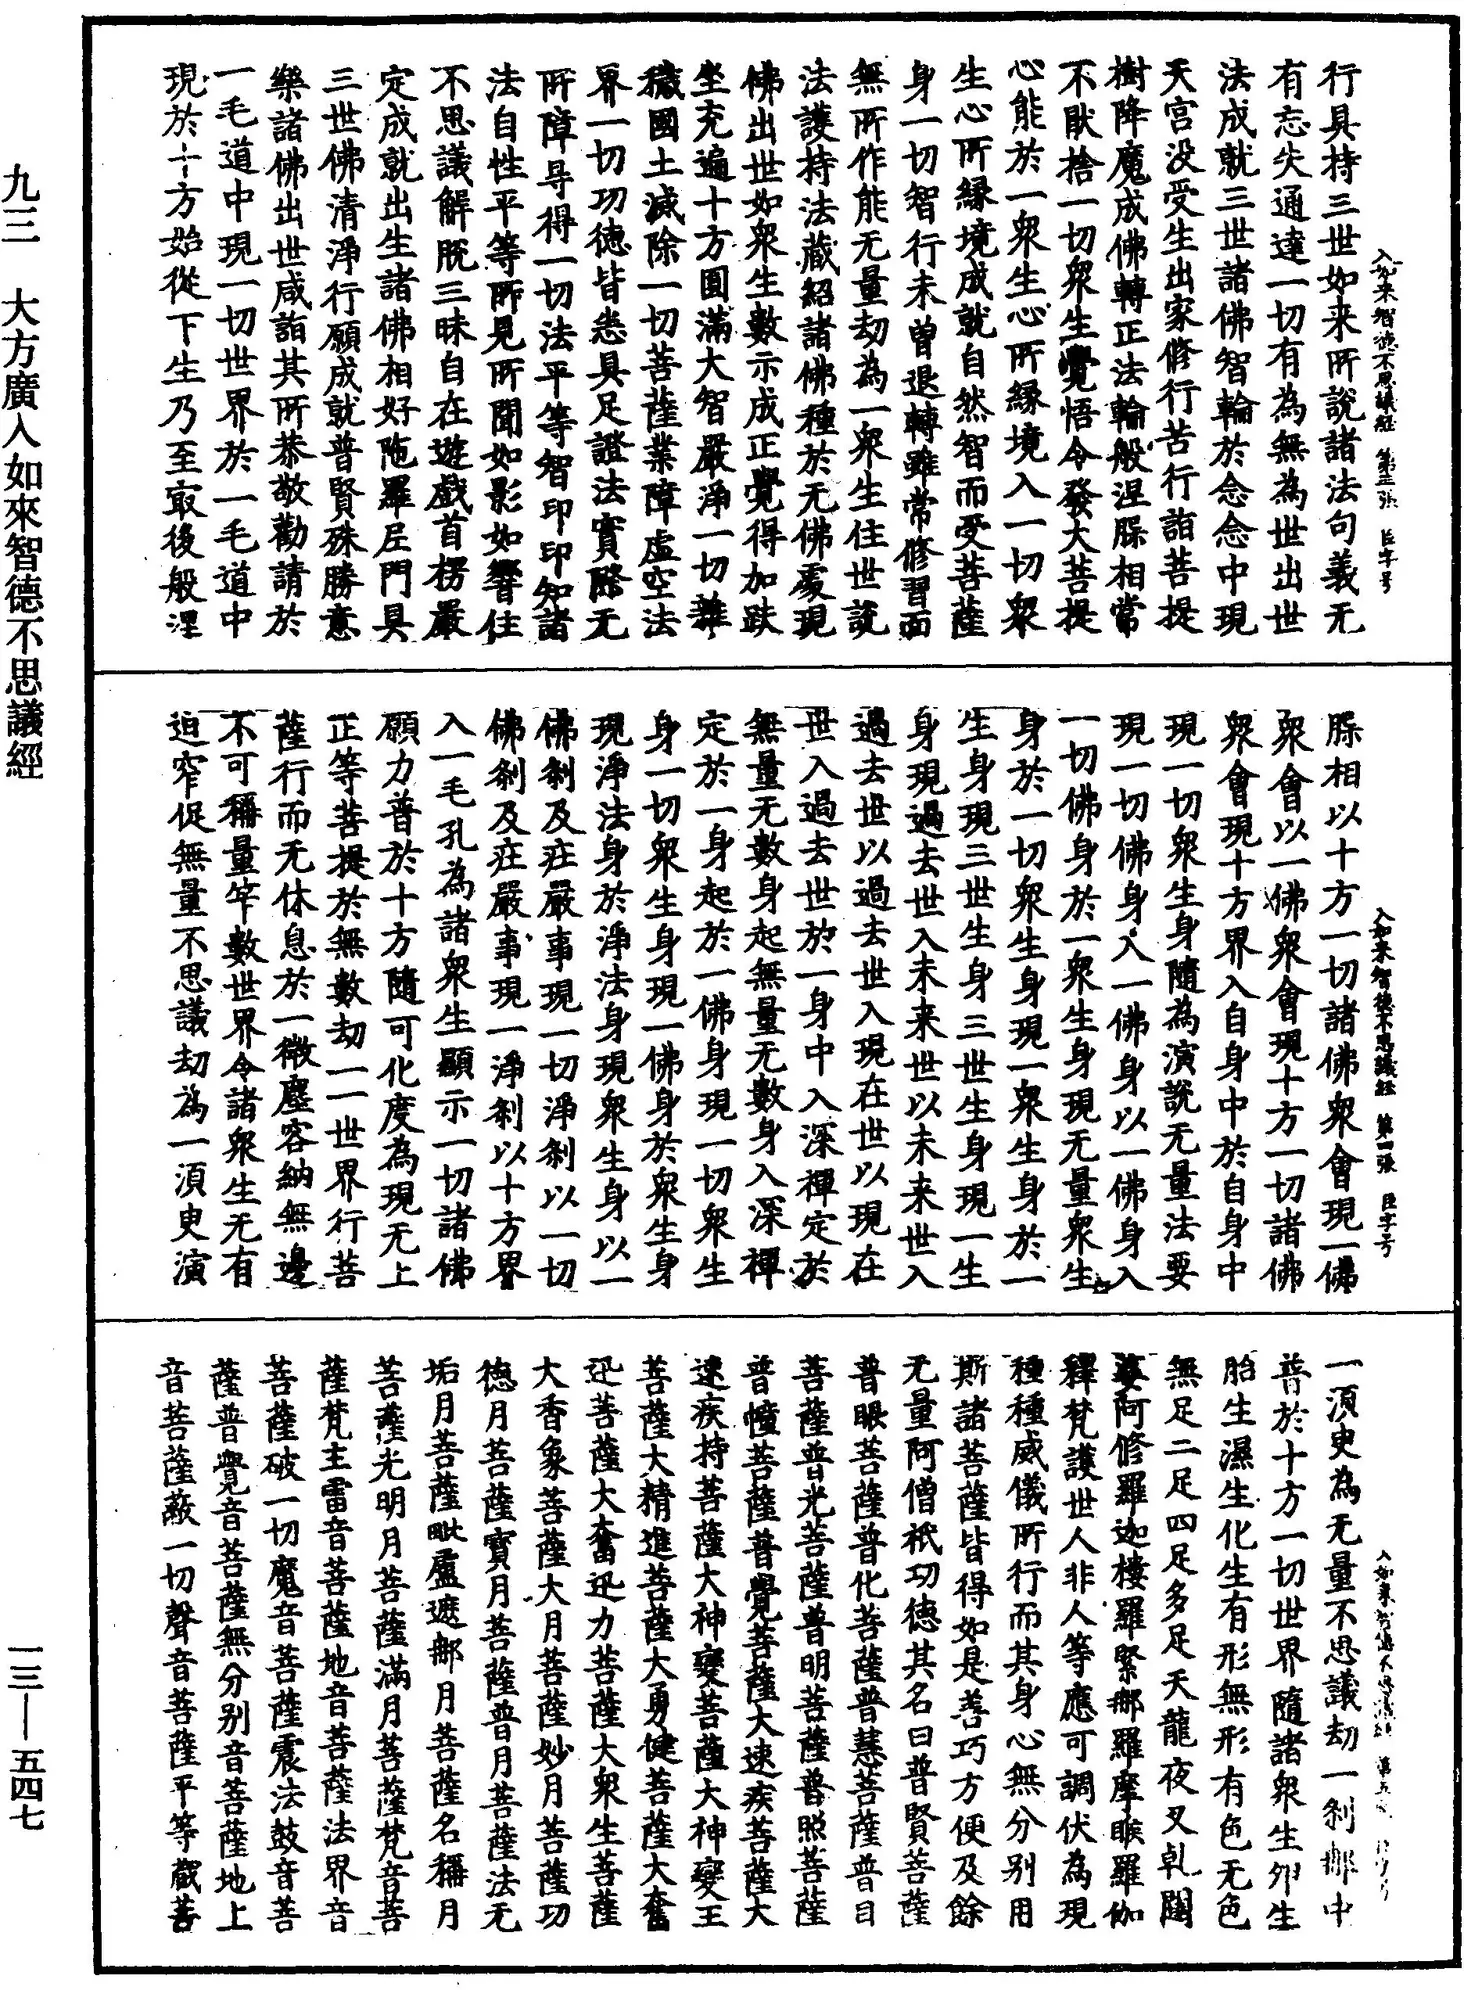 九三　大方廣入如來智德不思議經
一三—五四七
入如来智德不思議經　第三張　臣字号
行具持三世如来所說諸法句義无
有忘失通達一切有為無為世出世
法成就三世諸佛智輪於念念中現
天宫没受生出家修行苦行詣菩提
樹降魔成佛轉正法輪般涅槃相常
不猒捨一切衆生覺悟令發大菩提
心能於一衆生心所縁境入一切衆
生心所縁境成就自然智而受菩薩
身一切智行未曽退轉雖常修習而
無所作能无量劫為一衆生住世說
法護持法藏紹諸佛種於无佛處現
佛出世如衆生數示成正覺得加趺
坐充遍十方圓滿大智嚴淨一切雜
穢國土滅除一切菩薩業障虛空法
界一切功德皆悉具足證法實際无
所障导得一切法平等智印印知諸
法自性平等所見所聞如影如響住
不思議解脫三昧自在遊戲首楞嚴
定成就出生諸佛相好陁羅尼門具
三世佛清淨行願成就普賢殊勝意
樂諸佛出世咸詣其所恭敬勸請於
一毛道中現一切世界於一毛道中
現於十方始從下生乃至㝡後般涅
入如来智德不思議經　第四張　臣字号
槃相以十方一切諸佛衆會現一佛
衆會以一佛衆會現十方一切諸佛
衆會現十方界入自身中於自身中
現一切衆生身隨為演說无量法要
現一切佛身入一佛身以一佛身入
一切佛身於一衆生身現无量衆生
身於一切衆生身現一衆生身於一
生身現三世生身三世生身現一生
身現過去世入未来世以未来世入
過去世以過去世入現在世以現在
世入過去世於一身中入深禪定於
無量无數身起無量无數身入深禪
定於一身起於一佛身現一切衆生
身一切衆生身現一佛身於衆生身
現淨法身於淨法身現衆生身以一
佛刹及庄嚴事現一切淨刹以一切
佛刹及庄嚴事現一淨刹以十方界
入一毛孔為諸衆生顯示一切諸佛
願力普於十方隨可化度為現无上
正等菩提於無數劫一一世界行菩
薩行而无休息於一微塵容納無邊
不可稱量筭數世界令諸衆生无有
迫窄促無量不思議劫為一須臾演
入如来智德不思議經　第五
一須臾為无量不思議劫一刹那中
普於十方一切世界隨諸衆生卵生
胎生濕生化生有形無形有色无色
無足二足四足多足天龍夜叉乹闥
婆阿修羅迦樓羅緊那羅摩睺羅伽
釋梵護世人非人等應可調伏為現
種種威儀所行而其身心無分别用
斯諸菩薩皆得如是善巧方便及餘
无量阿僧祇功德其名曰普賢菩薩
普眼菩薩普化菩薩普慧菩薩普目
菩薩普光菩薩普明菩薩普照菩薩
普幢菩薩普覺菩薩大速疾菩薩大
速疾持菩薩大神變菩薩大神變王
菩薩大精進菩薩大勇健菩薩大奮
迅菩薩大奮迅力菩薩大衆生菩薩
大香象菩薩大月菩薩妙月菩薩功
德月菩薩寶月菩薩普月菩薩法无
垢月菩薩毗盧遮那月菩薩名稱月
菩薩光明月菩薩滿月菩薩梵音菩
薩梵主雷音菩薩地音菩薩法界音
菩薩破一切魔音菩薩震法鼓音菩
薩普覺音菩薩無分别音菩薩地上
音菩薩蔽一切聲音菩薩平等藏菩